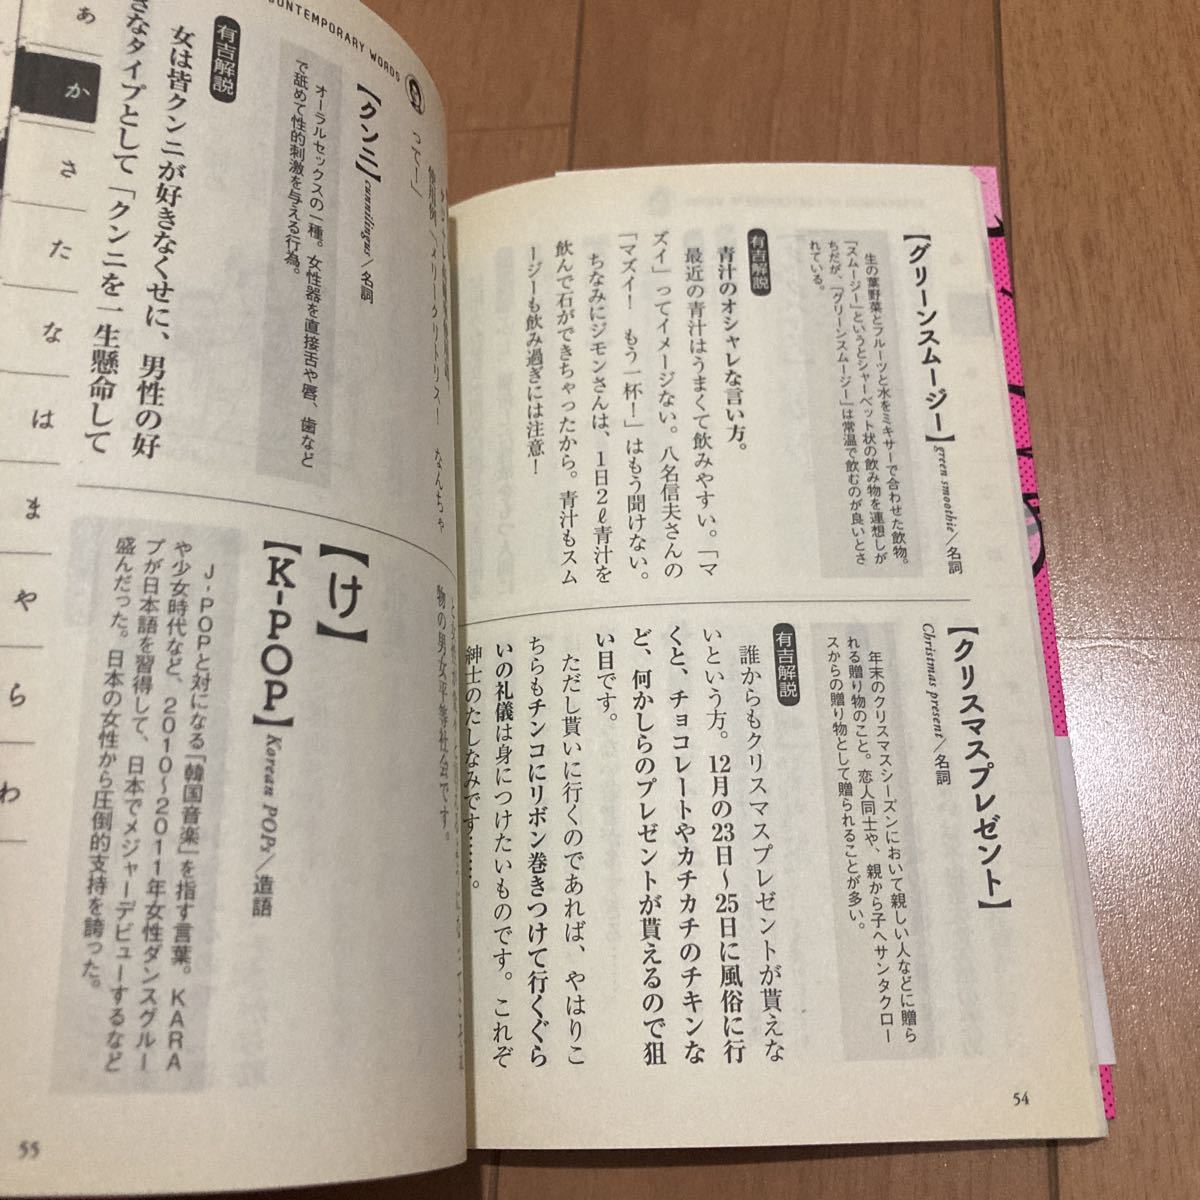 【グリーンスムージー】green smoothie／名詞
生の葉野菜とフルーツと水をミキサーで合わせた飲物。
「スムージー」というとシャーベット状の飲み物を連想しが
ちだが、「グリーンスムージー」は常温で飲むのが良いとさ
れている。
有吉解説
青汁のオシャレな言い方。
最近の青汁はうまくて飲みやすい。「マ
ズイ」ってイメージない。八名信夫さんの
「マズイ！　もう一杯！」はもう聞けない。
ちなみにジモンさんは、1日2ℓ青汁を
飲んで石ができちゃったから。青汁もスム
ージーも飲み過ぎには注意！
【クリスマスプレゼント】
Christmas present／名詞
年末のクリスマスシーズンにおいて親しい人などに贈ら
れる贈り物のこと。恋人同士や、親から子へサンタクロー
スからの贈り物として贈られることが多い。
有吉解説
誰からもクリスマスプレゼントが貰えな
いという方。12月の23日〜25日に風俗に行
くと、チョコレートやカチカチのチキンな
ど、何かしらのプレゼントが貰えるので狙
い目です。
ただし貰いに行くのであれば、やはりこ
ちらもチンコにリボン巻きつけて行くぐら
いの礼儀は身につけたいものです。これぞ
紳士のたしなみです……。
54
CONTEMPORARY WORDS
メリークリトリス！　なんちゃ
って！」
【クンニ】cunnilingus／名詞
オーラルセックスの一種。女性器を直接舌や唇、歯など
で舐めて性的刺激を与える行為。
有吉解説
女は皆クンニが好きなくせに、男性の好
きなタイプとして「クンニを一生懸命して
物の男女平等社会です。
【け】
【K-POP】Korean POP／造語
J-POPと対になる「韓国音楽」を指す言葉。KARA
や少女時代など、2010〜2011年女性ダンスグルー
プが日本語を習得して、日本でメジャーデビューするなど
盛んだった。日本の女性から圧倒的支持を誇った。
あ
か
さ
た
な
は
ま
や
ら
わ
55